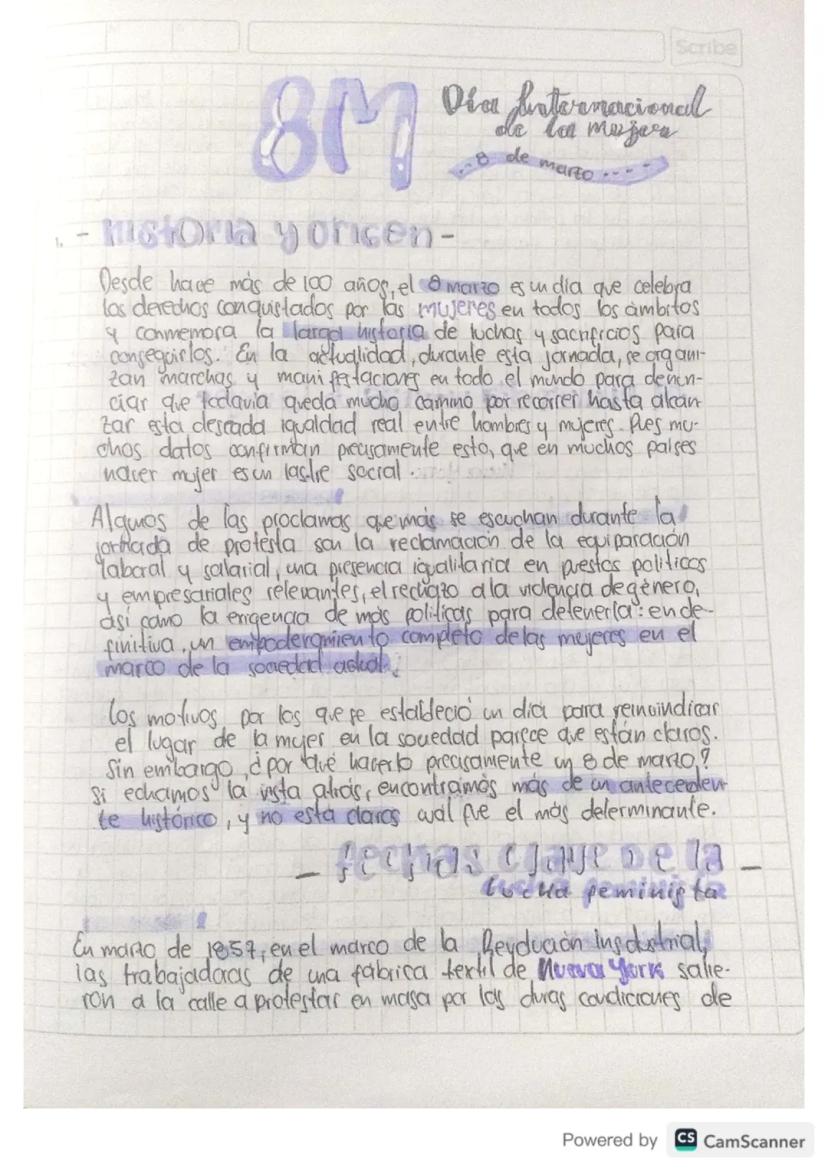 Scribe
8M
Día Internacional
de la mujer
8 de marzo
1. - Historia y origen -
Desde hace más de 100 años, el 8 marzo es un día que celebra
los derechos conquistados por las mujeres en todos los ámbitos
y conmemora la larga historia de luchas y sacrificios para
conseguirlos. En la actualidad, durante esta jornada, se organi-
zan marchas y manifestaciones en todo el mundo para denun-
ciar que todavía queda mucho camino por recorrer hasta alcan
zar esta deseada igualdad real entre hombres y mujeres. Pues mu-
chos datos confirman precisamente esto, que en muchos países
nacer mujer es un lastre social.
Algunos de las proclamas que más se escuchan durante la
jornada de protesta son la reclamación de la equiparación
laboral y salarial, una presencia igualitaria en puestos políticos
y empresariales relevantes, el rechazo a la violencia de género,
así como la exigencia de más políticas para detenerla: en de-
finitiva, un empoderamiento completo de las mujeres en el
marco de la sociedad actual.
Los motivos por los que se estableció un día para reinvindicar
el lugar de la mujer en la sociedad parece que están claros.
Sin embargo, ¿por qué hacerlo precisamente un 8 de marzo?
Si echamos la vista atrás, encontramos más de un anteceden
te histórico, y no está claros cuál fue el más determinante.
- fechas clave de la -
lucha feminista
En marzo de 1857, en el marco de la Revolución Insdustrial,
las trabajadoras de una fábrica textil de Nueva York salie-
ron a la calle a protestar en masa por las duras condiciones de
Powered by CS CamScanner